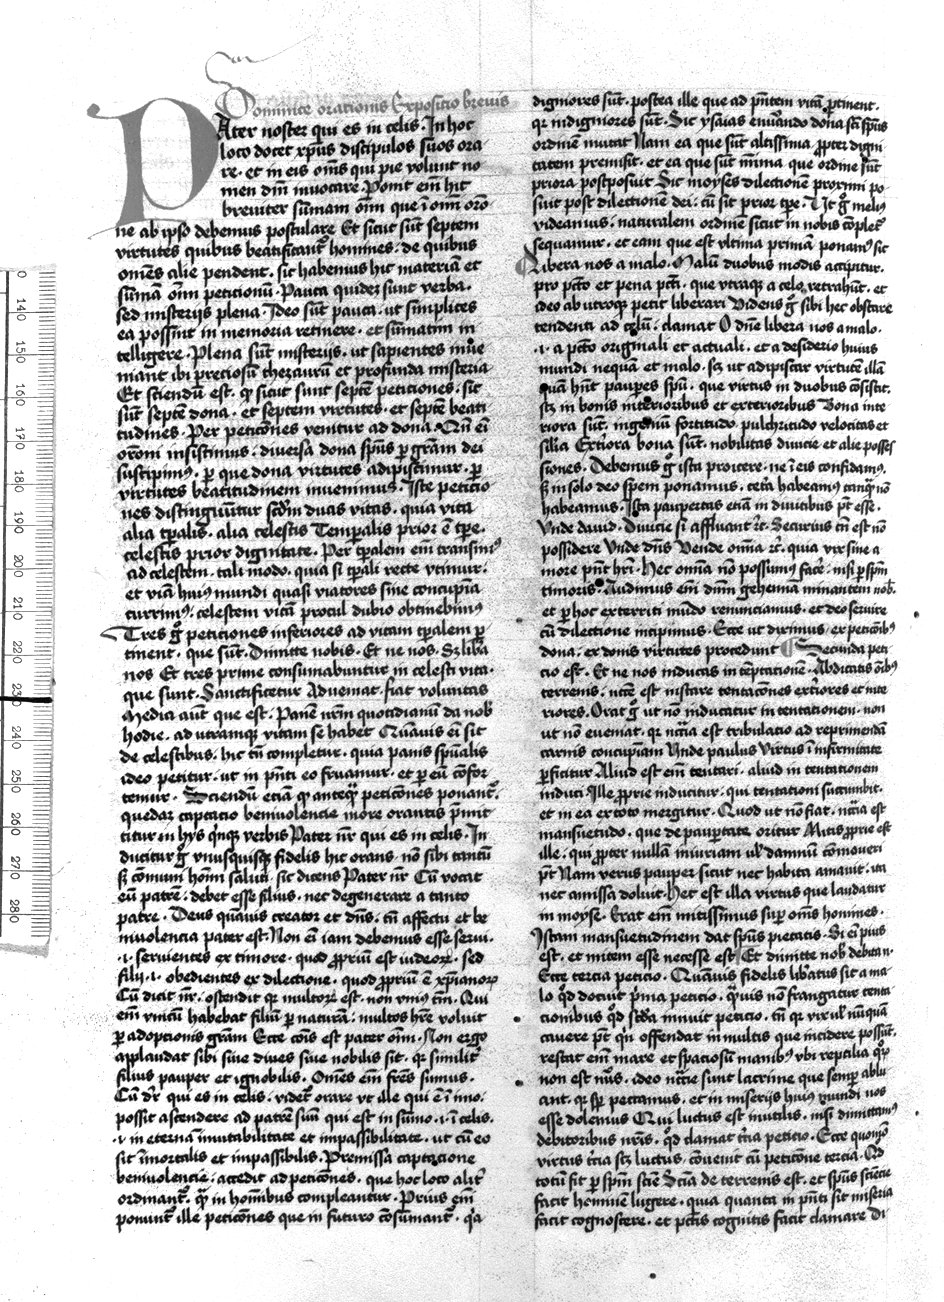 Dominice orationis Expositio brevis
PAter noster qui es in celis. In hoc
loco docet xp̄us discipulos suos ora
re. et in eis om̄s qui pie volunt no
men dn̄i invocare. Ponit em̄ hic
breuiter sūmam om̄ que ī om̄i orō
ne ab ip̄so debemus postulare Et sicut sūt septem
virtutes quibus beatificant᷑ homines. de quibus
om̄es alie pendent. sic habemus hic materiā et
sūmā om̄i peticionū. Pauca quidez sunt verba.
sed misterijs plena. Ideo sūt pauca. ut simplices
ea possint in memoria retinere. et sūmatim in
telligere. Plena sūt misterijs. ut sapientes
mant ibi preciosū thezaurū et profunda misteria
Et sciendū est. ꝙ sicut sunt septē peticiones. sic
sūt septē dona. et septem virtutes. et septē beati
tudines. Per peticōnes venitur ad dona. Qn̄ ei
orōni insistimus. diuersa dona sp̄us ꝑ grām dei
suscipimꝰ. ꝑ que dona virtutes adipiscimur. ꝑ
virtutes beatitudinem inuenimus. Iste peticio
nes distinguūtur scd̄m duas vitas. quia vita
alia tp̄alis. alia celestis Temꝑalis prior ē tp̄e.
celestis prior dignitate. Per tp̄alem em̄ transimꝰ
ad celestem. tali modo. quia si tp̄ali recte vtimur.
et viā huiꝰ mundi quasi viatores sine concupīa
currimꝰ. celestem vitā procul dubio obtinebimꝰ
Tres g̊ peticiones inferiores ad vitam tp̄alem ꝑ
tinent. que sūt. Dimitte nobis. Et ne nos. Sz libā
nos Et tres prime consumabuntur in celesti vita.
que sunt. Sanctificetur Adueniat. fiat voluntas
Media aūt que est. Panē nr̄m quotidianū da nob̄
hodie. ad utramque vitam se habet Quāuis ei sit
de celestibus. hic tn̄ completur. quia panis sp̄ualis
ideo petitur. ut in p̄nti eo fruamur. et ꝑ eū cōfor
temur. Sciendū eciā ꝙ anteꝙ̄ peticōnes ponant᷑.
quedaz captacio beniuolencie more orantis p̄mit
titur in hijs q̄nqꝫ verbis Pater nr̄ qui es in celis. In
ducitur g̊ vnusquisqꝫ fidelis hic orans. nō sibi tantū
sꝫ comuni homī saluti. sic dicens Pater nr̄ Cū vocat
eū patrē. debet esse filius. nec degenerare a tanto
patre. Deus quāuis creator et dn̄s. tn̄ affectu et be
niuolencia pater est. Non ei iam debemus esse serui.
.i. seruientes ex timore. quod ꝓpriū est iudeoꝝ. sed
filij. i. obedientes ex dilectione. quod ꝓpriū ē xp̄ianoꝝ
Cū dicit nr̄. ostendit ꝙ multoꝝ est. non vniꝰ tm̄. Qui
em̄ vnicū habebat filiū ꝑ naturā. multos hr̄e voluit
ꝑ adopcionis grām Ecce cōis est pater om̄i. Non ergo
applaudat sibi siue diues siue nobilis sit. ꝙ similit᷑
filius pauper et ignobilis. Om̄es em̄ fr̄es sumus.
Cū dr̄ qui es in celis. videt᷑ orare vt ille qui ē ī imo.
possit ascendere ad patrē suū qui est in sūmo. .i. ī celis.
.i. in eterna īmutabilitate et impassibilitate. ut cū eo
sit īmortalis et impassibilis. Premissa captacione
beniuolencie. accedit ad peticōnes. que hoc loco alit᷑
ordinant᷑. ꝙ̄ in hominibus compleantur. Prius em̄
ponunt᷑ ille peticōnes que in futuro cōsumant᷑. q̄a
digniores sūt. postea ille que ad p̄ntem vitā ꝓtinent.
qr indigniores sūt. Sic ysaias enum̄ando dona sc̄i sp̄us
ordinē mutat Nam ea que sūt altissima ꝓpter digni
tatem premisit. et ea que sūt īfima que ordine sūt
priora postposuit Sic moyses dilectionem proximi po
suit post dilectionē dei. cū sit prior tp̄e. Ut g̊ meliꝰ
videamus. naturalem ordinē sicut in nobis cōplet᷑
sequamur. et eam que est vltima primā ponamꝰ sic
Libera nos a malo. Malū duobus modis accipitur.
pro pctō et pena pcti. que vtraqꝫ a celo retrahūt. et
ideo ab utroqꝫ petit liberari Videns g̊ sibi hec obstare
tendenti ad celū. clamat O dn̄e libera nos a malo.
.i. a pctō originali et actuali. et a desiderio huius
mundi nequā et malo. sꝫ ut adipiscar virtutē illā
quā hn̄t pauꝑes spū. que virtus in duobus cōsistit.
sꝫ in bonis interioribus et exterioribus Bona inte
riora sūt. ingeniū fortitudo pulchritudo velocitas et
silia Extiora bona sūt. nobilitas diuicie et alie posses
siones. Debemus g̊ ista proicere. ne ī eis confidamꝰ.
sꝫ in solo deo spem ponamus. cetā habeamꝰ tanqꝫ nō
habeamus. Ista paupertas eciā in diuitibus pt̄ esse.
Vnde dauid. Diuicie si affluant ꝛc̄. Securius tn̄ est nō
possidere Vnde dn̄s Vende om̄ia ꝛc̄. quia vix sine a
more pn̄t hr̄i. Hec om̄ia nō possumꝰ facē. nisi ꝑ sp̄m
timoris. Audimus em̄ dn̄m gehennā minantem nob̄.
et ꝑ hoc exterriti mūdo renunciamus. et deo seruire
cū dilectione incipimus. Ecce ut diximus. ex peticōibꝰ
dona. ex donis virtutes procedunt Secunda peti
cio est. Et ne nos inducas in tēptacionem. Abdicatis om̄ibꝰ
terrenis. ncc̄e est instare tentacōnes ext̄iores et inte
riores. Orat g̊ ut nō inducatur in tentacionem. non
ut nō eueniat. qr nccīa est tribulatio ad reprimendā
carnis concupīam Vnde paulus Virtus ī infirmitate
ꝑficitur Aliud est em̄ tentari. aliud in tentationem
induci. Ille ꝓprie inducitur. qui tentationi succumbit.
et in ea ex toto mergitur. Quod ut nō fiat. nccīa est
mansuetudo. que de pauꝑtate oritur Mitis ꝓprie est
ille. qui ꝓpter nullā iniuriam ul̄ damnū cōmoueri
pt̄ Nam verus pauper sicut nec habita amauit. ita
nec amissa doluit. Hec est illa virtus que laudatur
in moyse. Erat em̄ mitissimus suꝑ om̄s homines.
Istam mansuetudinem dat sp̄us pietatis. Si ei pius
est. et mitem esse necesse est. Et dimitte nob̄ debita n.
Ecce tercia peticio. Quāuis fidelis lib̄atus sit a ma
lo qd̄ docuit p̄ma peticio. q̄uis nō frangatur tenta
cionibus qd̄ scd̄a innuit peticio. tn̄ qr vix ul̄ nūquā
cauere pt̄ qn̄ offendat in multis que incidere possūt.
restat em̄ mare et spaciosū manibꝰ vbi reptilia qꝝ
non est nūs. ideo nccīe sunt lacrime que semꝑ ablu
ant. qr sꝑ peccamus. et in miserijs huiꝰ mundi nos
esse dolemus Qui luctus est inutilis. nisi dimittamꝰ
debitoribus nr̄is. qd̄ clamat tc̄ia peticio. Ecce quomō
virtus tc̄ia sꝫ luctus. cōuenit cū peticōne tercia. Qd̄
totū fit ꝑ sp̄m sciē Sciā de terrenis est. et sp̄us sciēcie
facit hominē lugere. quia quanta in p̄nti sit miseria
facit cognoscere. et pctīs cognitis facit clamare Di
0
140
150
160
170
180
190
200
210
220
230
240
250
260
270
280